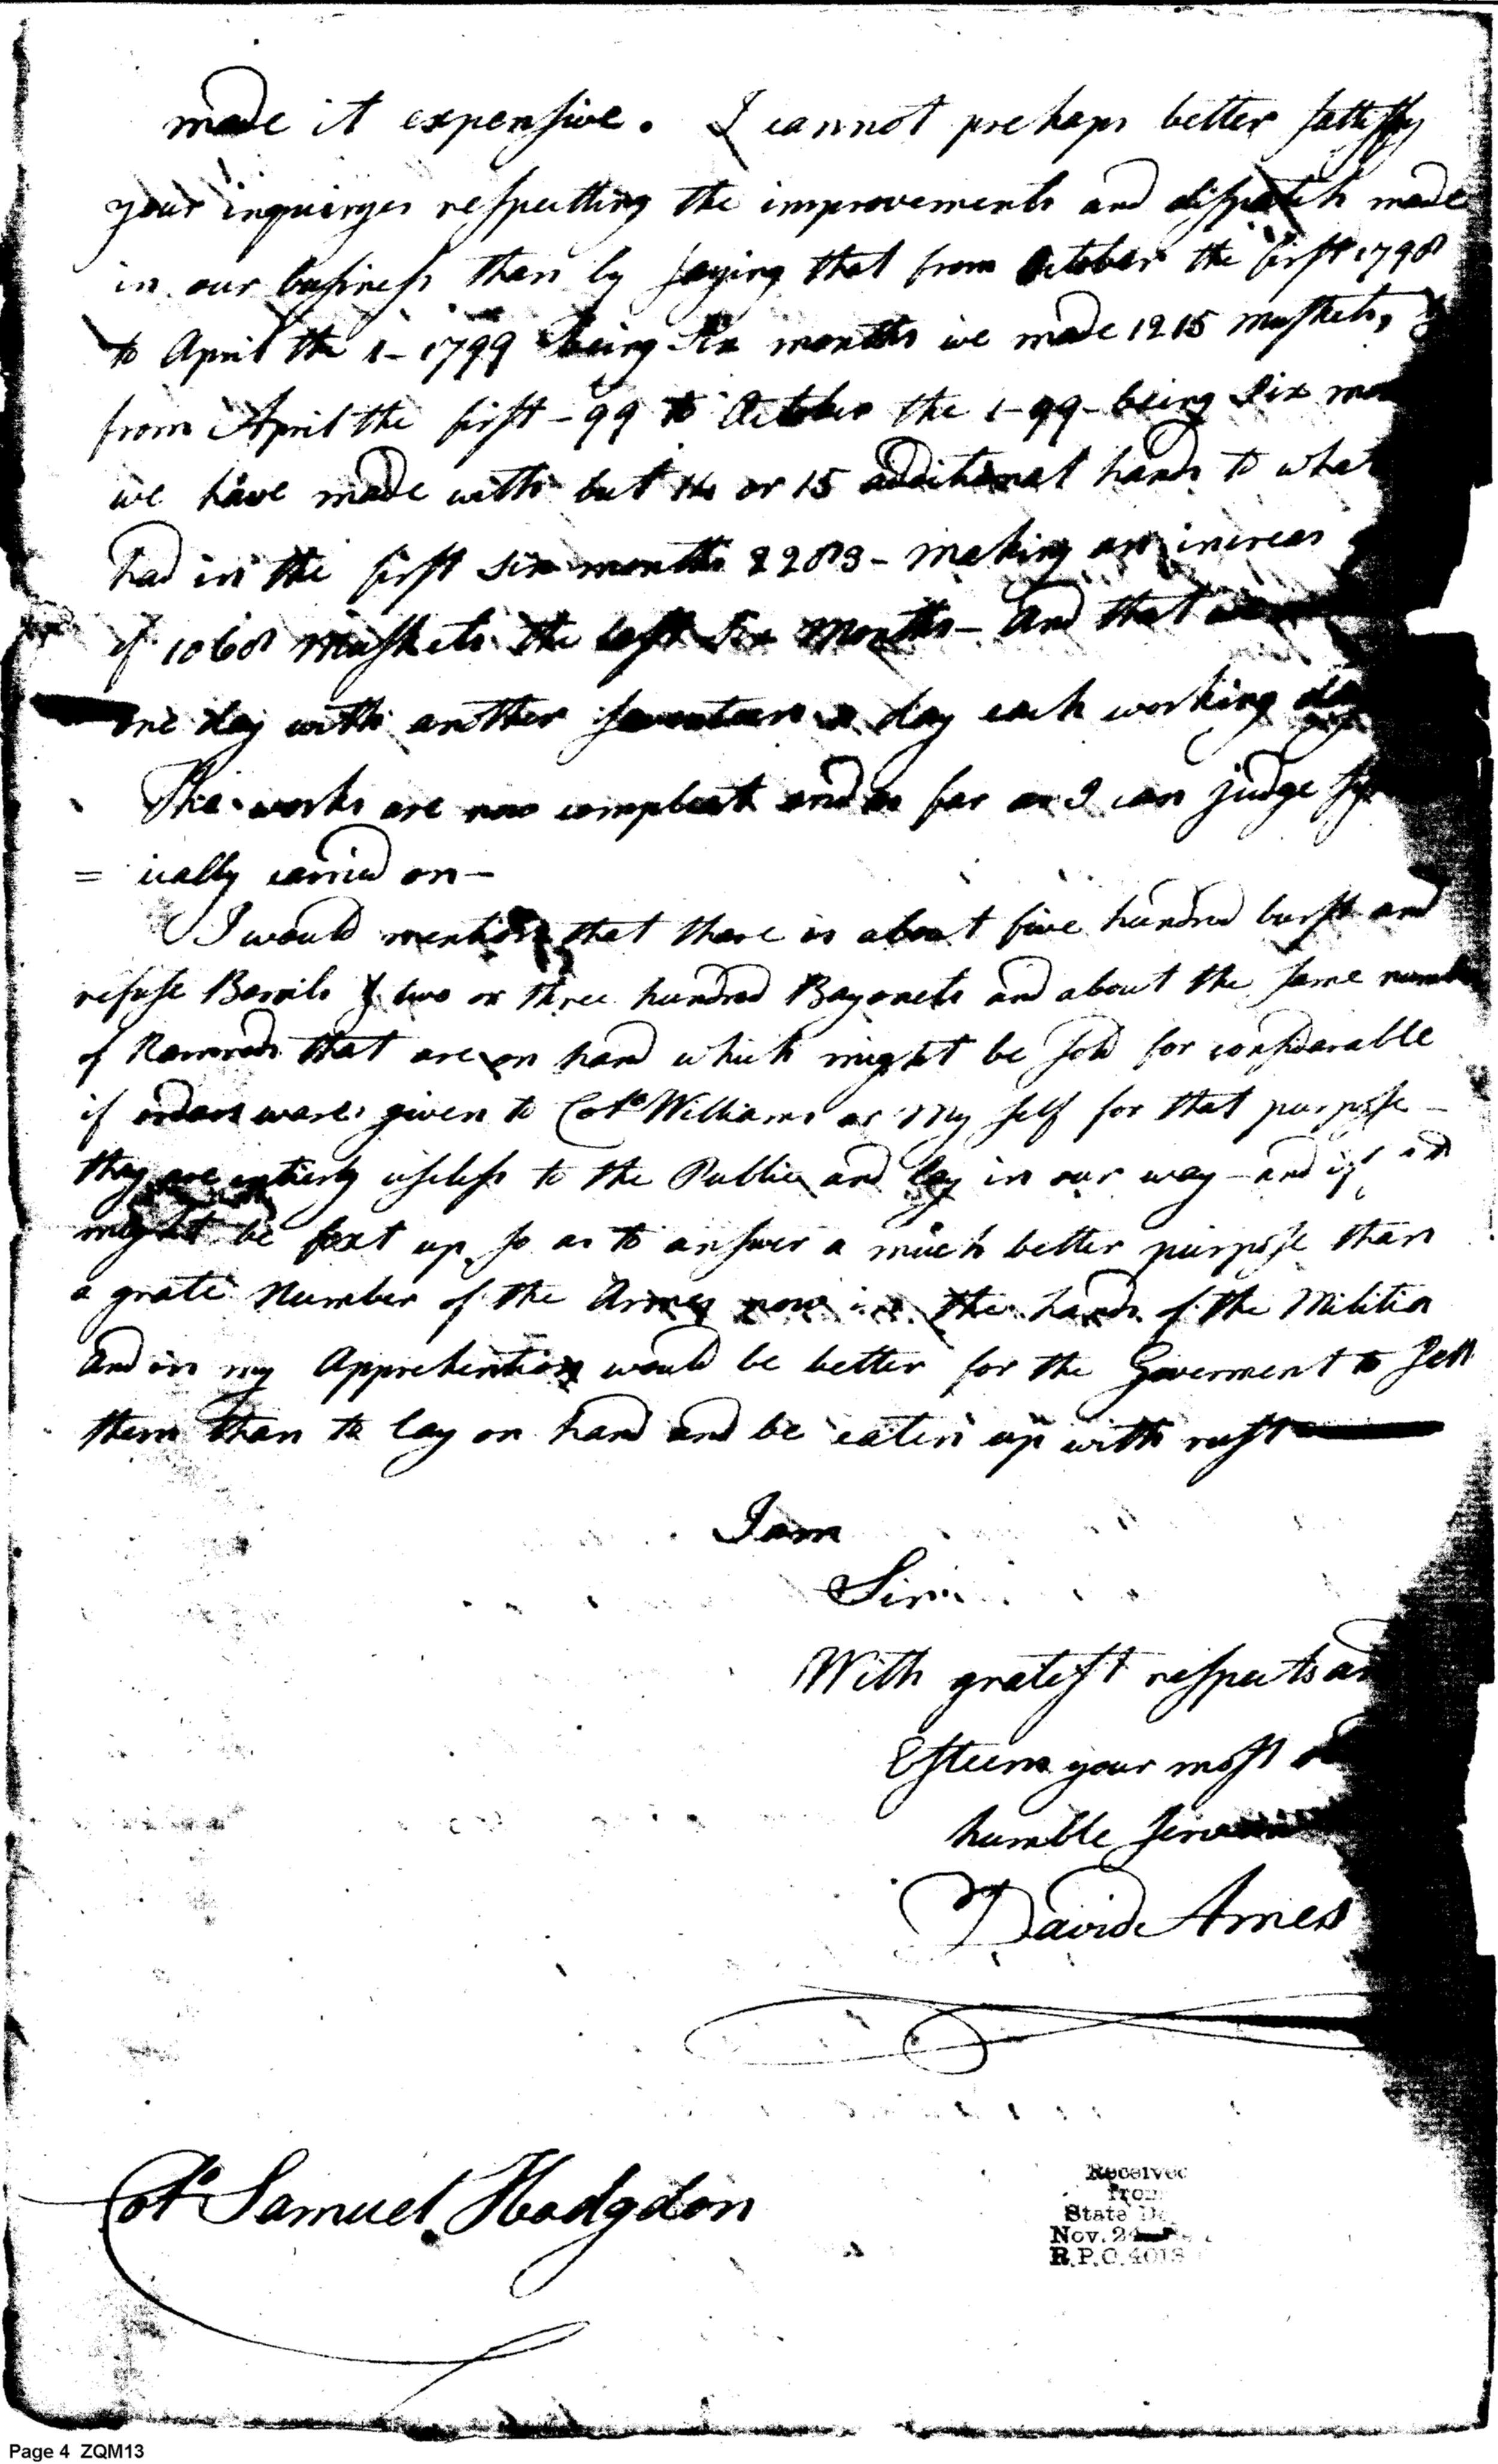 made it expensive. I cannot prehaps better sattisfy
your inquieryes respectting the improvements and dispatch made
in our business than by saying that from October the first 1798
to April the 1 - 1799 being Six months we made 1215 muskets,
from April the first - 99 to October the 1 - 99 - being Six
we have made with but 14 or 15 additional hands to what
had in the first six months 2283 - making an increas
of 1068 Muskets the last Six Months - And that
one day with another seventeen a day each working day
The works are now compleat and as far as I can judge
= ically carried on -
I would mention that there is about five hundred burst and
refuse Barrils & two or three hundred Bayonets and about the same
of Ramrods that are on hand which might be sold for considarable
if orders ware given to Colo Williams or My self for that purpose -
they are entierly useless to the Public and lay in our way - and
might be fixt up so as to answer a much better purpose than
a grate Number of the Armes now in the hands of the Militia
And in my Apprehention would be better for the Goverment to Sell
them than to lay on hand and be eaten up with rust
I am
Sir
With gratest respects
Esteem your most
humble
David Ames
Colo Samuel Hodgdon
Received
from
State
Nov. 24
R.P.O. 4018
Page 4 ZQM13